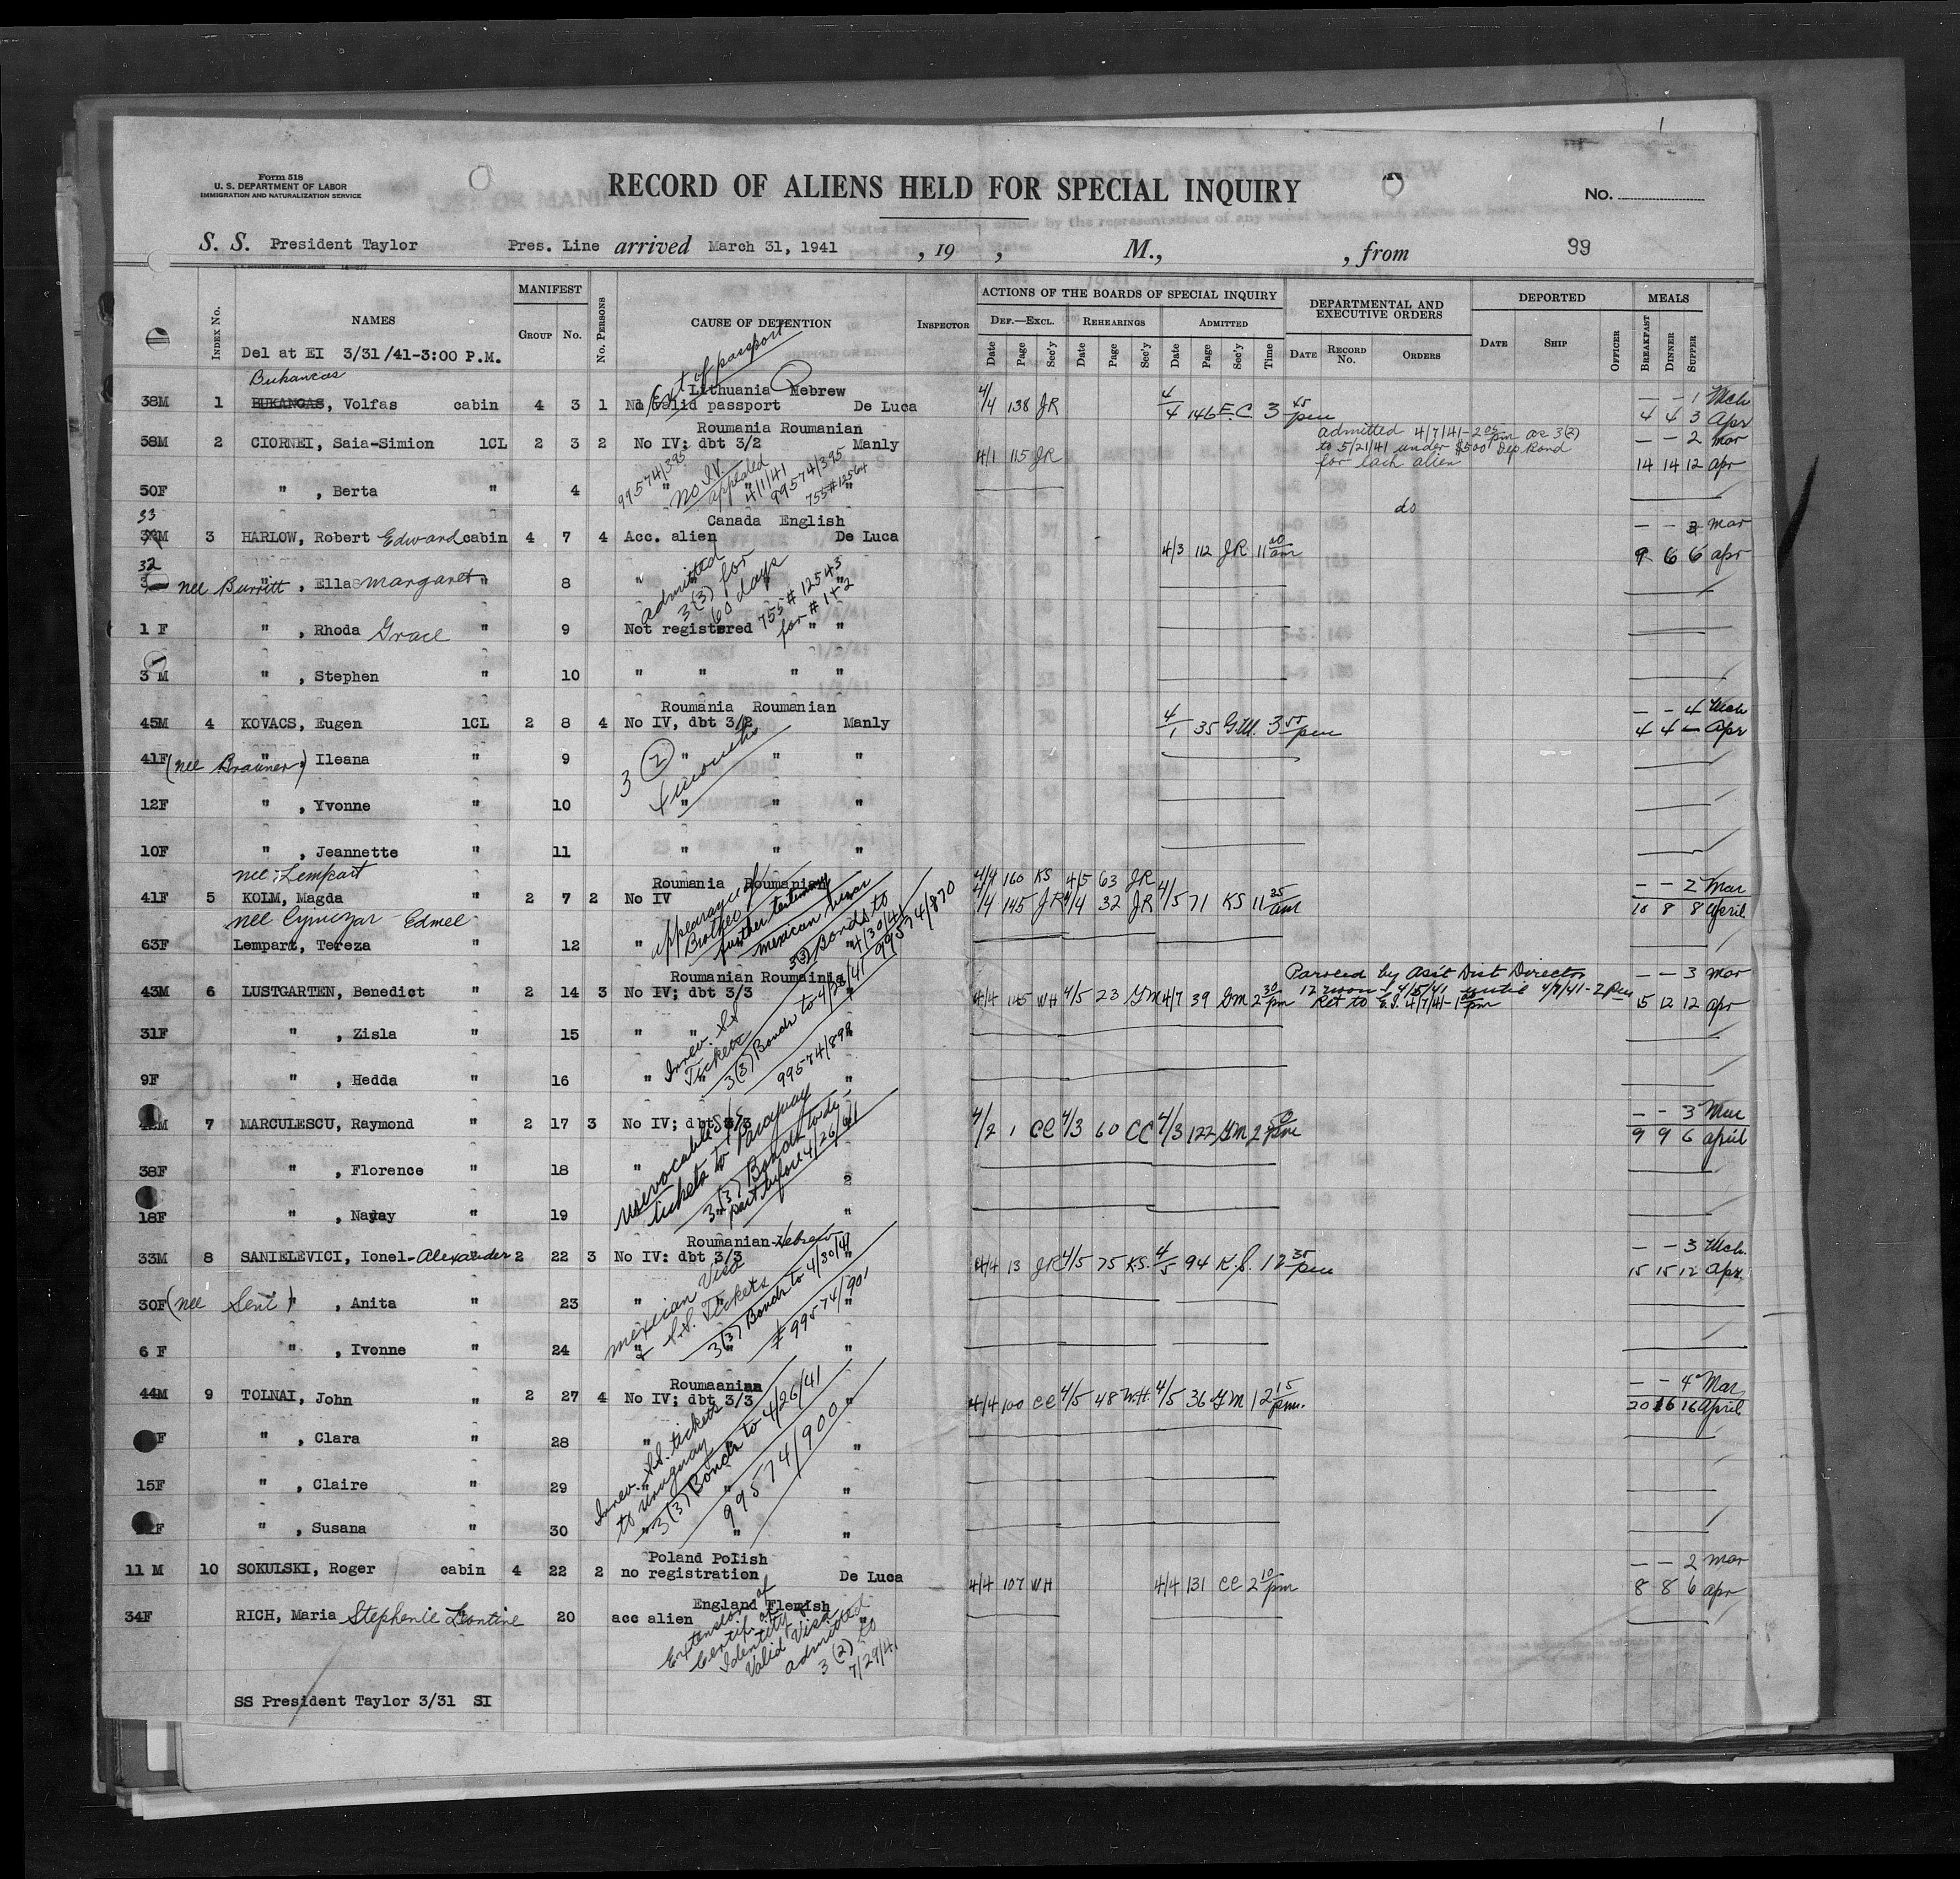 Form 518
U. S. DEPARTMENT OF LABOR
IMMIGRATION AND NATURALIZATION SERVICE
RECORD OF ALIENS HELD FOR SPECIAL INQUIRY
No.
S. S. President Taylor Pres. Line arrived March 31, 1941 , 19 , M., , from 99
INDEX No. NAMES MANIFEST GROUP No. No. PERSONS CAUSE OF DETENTION INSPECTOR
ACTIONS OF THE BOARDS OF SPECIAL INQUIRY
DEF.—EXCL. REHEARINGS ADMITTED
Date Page Sec'y Date Page Sec'y Date Page Sec'y Time
DEPARTMENTAL AND EXECUTIVE ORDERS
DATE RECORD No. ORDERS
DEPORTED
DATE SHIP OFFICER
MEALS
BREAKFAST DINNER SUPPER
Del at EI 3/31/41-3:00 P.M.
Ext of passport
Bukancas
Lithuania Hebrew
— — 1 Mch
38M 1 BUKANGAS, Volfas cabin 4 3 1 No valid passport De Luca 4/4 138 JR 4/4 146 E.C. 3 45 pm 4 4 3 Apr
Roumania Roumanian
58M 2 CIORNEI, Saia-Simion 1CL 2 3 2 No IV; dbt 3/2 Manly 4/1 115 JR — — 2 Mar
admitted 4/7/41-2 05 pm as 3(2)
to 5/21/41 under $500 Dep Bond
for each alien
14 14 12 apr
99574/395
No I.V.
appealed
4/1/41
99574/395
755#12564
50F " , Berta " 4 " " "
do
Canada English
33
33M 3 HARLOW, Robert Edward cabin 4 7 4 Acc. alien De Luca 4/3 112 JR 11 20 am — — 3 mar
9 6 6 apr
32
3 nee Burritt " , Ellas margaret " 8 " "
admitted
3(3) for
60 days
755#12543
for #1+2
1 F " , Rhoda Grace " 9 Not registered " "
3 M " , Stephen " 10 " " " "
Roumania Roumanian
45M 4 KOVACS, Eugen 1CL 2 8 4 No IV, dbt 3/2 Manly 4/1 35 G.M. 3 55 pm — — 4 Mch
4 4 — Apr
41F (nee Brauner) " , Ileana " 9 " " "
3 (2)
4 months
12F " , Yvonne " 10 " " "
10F " , Jeannette " 11 " " "
nee Lempart
Roumania Roumanian
4/4 160 KS 4/5 63 JR
41F 5 KOLM, Magda " 2 7 2 No IV 4/4 145 JR 4/4 32 JR 4/5 71 KS 11 25 am — — 2 Mar
10 8 8 April
appearance of
Brother of
further testimony
mexican visas
3(3) Bonds to
4/30/41
99574/870
Edmee
63F Lempart, Tereza 12 " "
Roumanian Roumainia
43M 6 LUSTGARTEN, Benedict " 2 14 3 No IV; dbt 3/3 " 4/4 115 WH 4/5 23 GM 4/7 39 GM 2 30 pm — — 3 mar
Paroled by Ass't Dist Director
12 noon - 4/5/41 until 4/7/41-2 Pm
Ret to E.I. 4/7/41-1 pm
15 12 12 apr
31F " , Zisla " 15 " "
Irrev. S.S.
Tickets
3(3) Bonds to 4/28/41
99574/898
9F " , Hedda " 16 " " "
42M 7 MARCULESCU, Raymond " 2 17 3 No IV; dbt 3/3 " 4/2 1 CC 4/3 60 CC 4/3 122 GM 2 pm — — 3 Mar
9 9 6 april
38F " , Florence " 18 "
Irrevocable S/S
tickets to Paraguay
3(3) Bonds to de
part before 4/26/41
18F " , Nayday " 19 " "
Roumanian-Hebrew
33M 8 SANIELEVICI, Ionel-Alexander 2 22 3 No IV: dbt 3/3 4/4 13 JR 4/5 75 K.S. 4/5 94 K.S. 12 35 pm — — 3 Mch.
15 15 12 Apr.
30F (nee Sent) " , Anita " 23 " " "
mexican Visa
& S.S. Tickets
3(3) Bonds to 4/30/41
# 99574/901
6 F " , Ivonne " 24 " " "
Roumaanian
44M 9 TOLNAI, John " 2 27 4 No IV; dbt 3/3 " 4/4 100 CC 4/5 48 W.H. 4/5 36 GM 12 15 pm. — — 4 Mar
20 16 16 April
F " , Clara " 28 " "
Irrev. S.S. tickets
to Uruguay
3(3) Bonds to 4/26/41
99574/900
15F " , Claire " 29 " " "
2F " , Susana " 30 " " "
Poland Polish
11 M 10 SOKULSKI, Roger cabin 4 22 2 no registration De Luca 4/4 107 WH 4/4 131 CC 2 10 pm — — 2 mar
8 8 6 apr
England Flemish
34F RICH, Maria Stephenie Leontine 20 acc alien "
Extension of
Certif. of
Identity &
Valid Visa
admitted
3 (2) to
7/29/41
SS President Taylor 3/31 SI